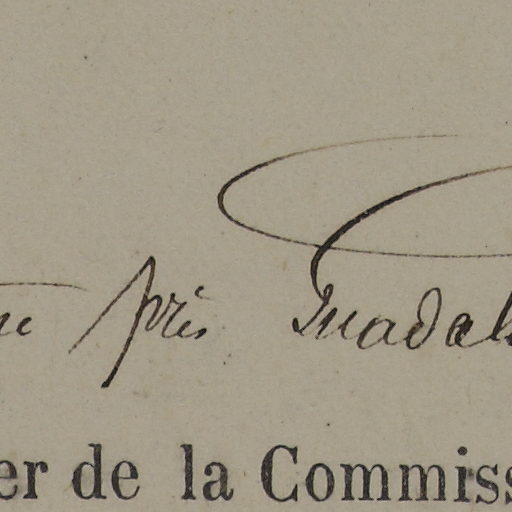 près Guadal
er de la Commiss